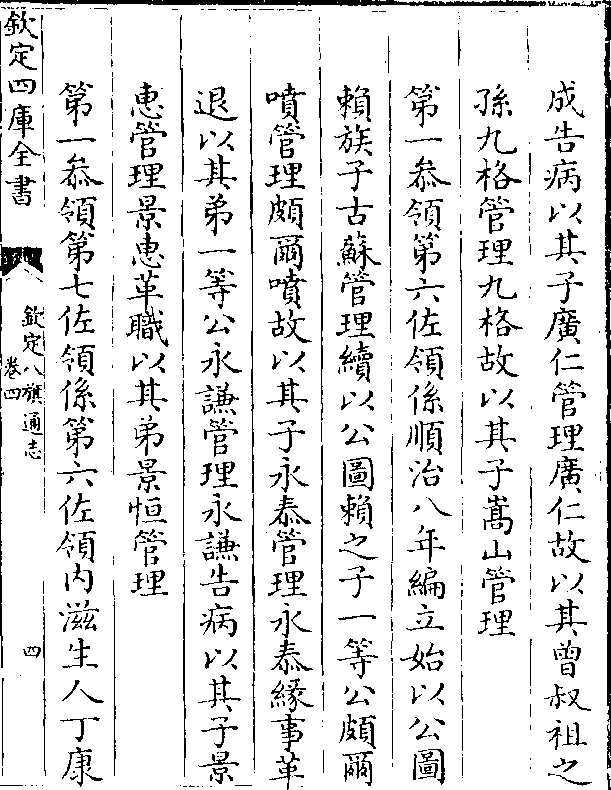 成告病以其子廣仁管理廣仁故以其曾叔祖之
孫九格管理九格故以其子嵩山管理
第一叅領第六佐領係順治八年編立始以公圖
賴族子古蘇管理續以公圖賴之子一等公頗爾
噴管理頗爾噴故以其子永泰管理永泰緣事革
退以其弟一等公永謙管理永謙告病以其子景
惠管理景惠革職以其弟景恒管理
第一叅領第七佐領係第六佐領内滋生人丁康
欽定四庫全書
欽定八旗通志
卷四
四